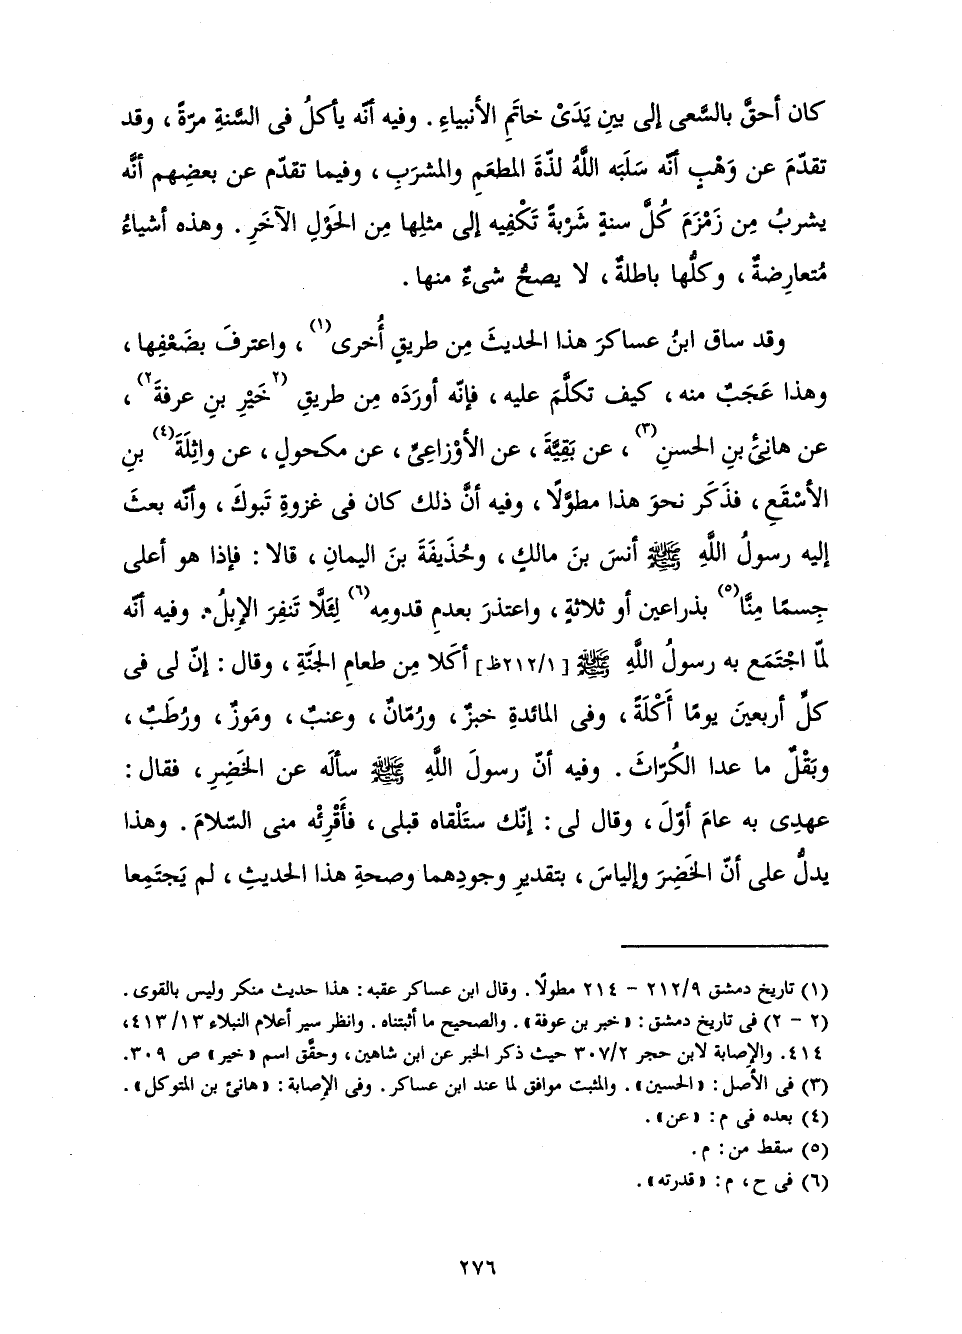 كان أحقَّ بالسَّعى إلى بينِ يَدَىْ خاتَمِ الأنبياءِ . وفيه أنَّه يأكلُ فى السَّنةِ مرّةً ، وقد
تقدّمَ عن وَهْبٍ أنَّه سَلَبَه اللَّهُ لذّةَ المطعَمِ والمشرَبِ ، وفيما تقدّم عن بعضِهم أنَّه
يشربُ مِن زَمْزَمَ كُلَّ سنةٍ شَرْبةً تَكْفِيه إلى مثلِها مِن الحَوْلِ الآخَرِ . وهذه أشياءُ
مُتعارِضةٌ ، وكلُّها باطلةٌ ، لا يصحُّ شىءٌ منها .
وقد ساق ابنُ عساكرَ هذا الحديثَ مِن طريقٍ أُخرى(١) ، واعترفَ بضَعْفِها ،
وهذا عَجَبٌ منه ، كيف تكلَّمَ عليه ، فإنّه أورَدَه مِن طريقِ (٢خَيْرِ بنِ عرفةَ٢) ،
عن هانِئِ بنِ الحسنِ(٣) ، عن بَقِيَّةَ ، عن الأوْزاعِىِّ ، عن مكحولٍ ، عن واثِلَةَ(٤) بنِ
الأسْقَعِ ، فذَكَر نحوَ هذا مطوَّلًا ، وفيه أنَّ ذلك كان فى غزوةِ تَبوكَ ، وأنّه بعثَ
إليه رسولُ اللَّهِ ﷺ أنسَ بنَ مالكٍ ، وحُذَيفَةَ بنَ اليمانِ ، قالا : فإذا هو أعلى
جِسمًا مِنَّا(٥) بذراعين أو ثلاثةٍ ، واعتذرَ بعدمِ قدومِه(٦) لِئَلَّا تَنفِرَ الإبلُ . وفيه أنّه
لمّا اجْتَمَع به رسولُ اللَّهِ ﷺ [ ٢١٢/١ظ] أكَلا مِن طعامِ الجنَّةِ ، وقال : إنّ لى فى
كلِّ أربعينَ يومًا أَكْلَةً ، وفى المائدةِ خبزٌ ، ورُمّانٌ ، وعنبٌ ، ومَوزٌ ، ورُطَبٌ ،
وبَقْلٌ ما عدا الكُرّاثَ . وفيه أنّ رسولَ اللَّهِ ﷺ سألَه عن الخَضِرِ ، فقال :
عهدِى به عامَ أوّلَ ، وقال لى : إنّك ستَلْقاه قبلى ، فأَقْرِئْه منى السّلامَ . وهذا
يدلُّ على أنّ الخَضِرَ وإلياسَ ، بتقديرِ وجودِهما وصحةِ هذا الحديثِ ، لم يَجتَمِعا
(١) تاريخ دمشق ٢١٢/٩ - ٢١٤ مطولًا . وقال ابن عساكر عقبه : هذا حديث منكر وليس بالقوى .
(٢ - ٢) فى تاريخ دمشق : « خبر بن عوفة » . والصحيح ما أثبتناه . وانظر سير أعلام النبلاء ٤١٣/١٣ ،
٤١٤ . والإصابة لابن حجر ٣٠٧/٢ حيث ذكر الخبر عن ابن شاهين ، وحقَّق اسم « خير » ص ٣٠٩ .
(٣) فى الأصل : « الحسين » . والمثبت موافق لما عند ابن عساكر . وفى الإصابة : « هانئ بن المتوكل » .
(٤) بعده فى م : « عن » .
(٥) سقط من : م .
(٦) فى ح ، م : « قدرته » .
٢٧٦